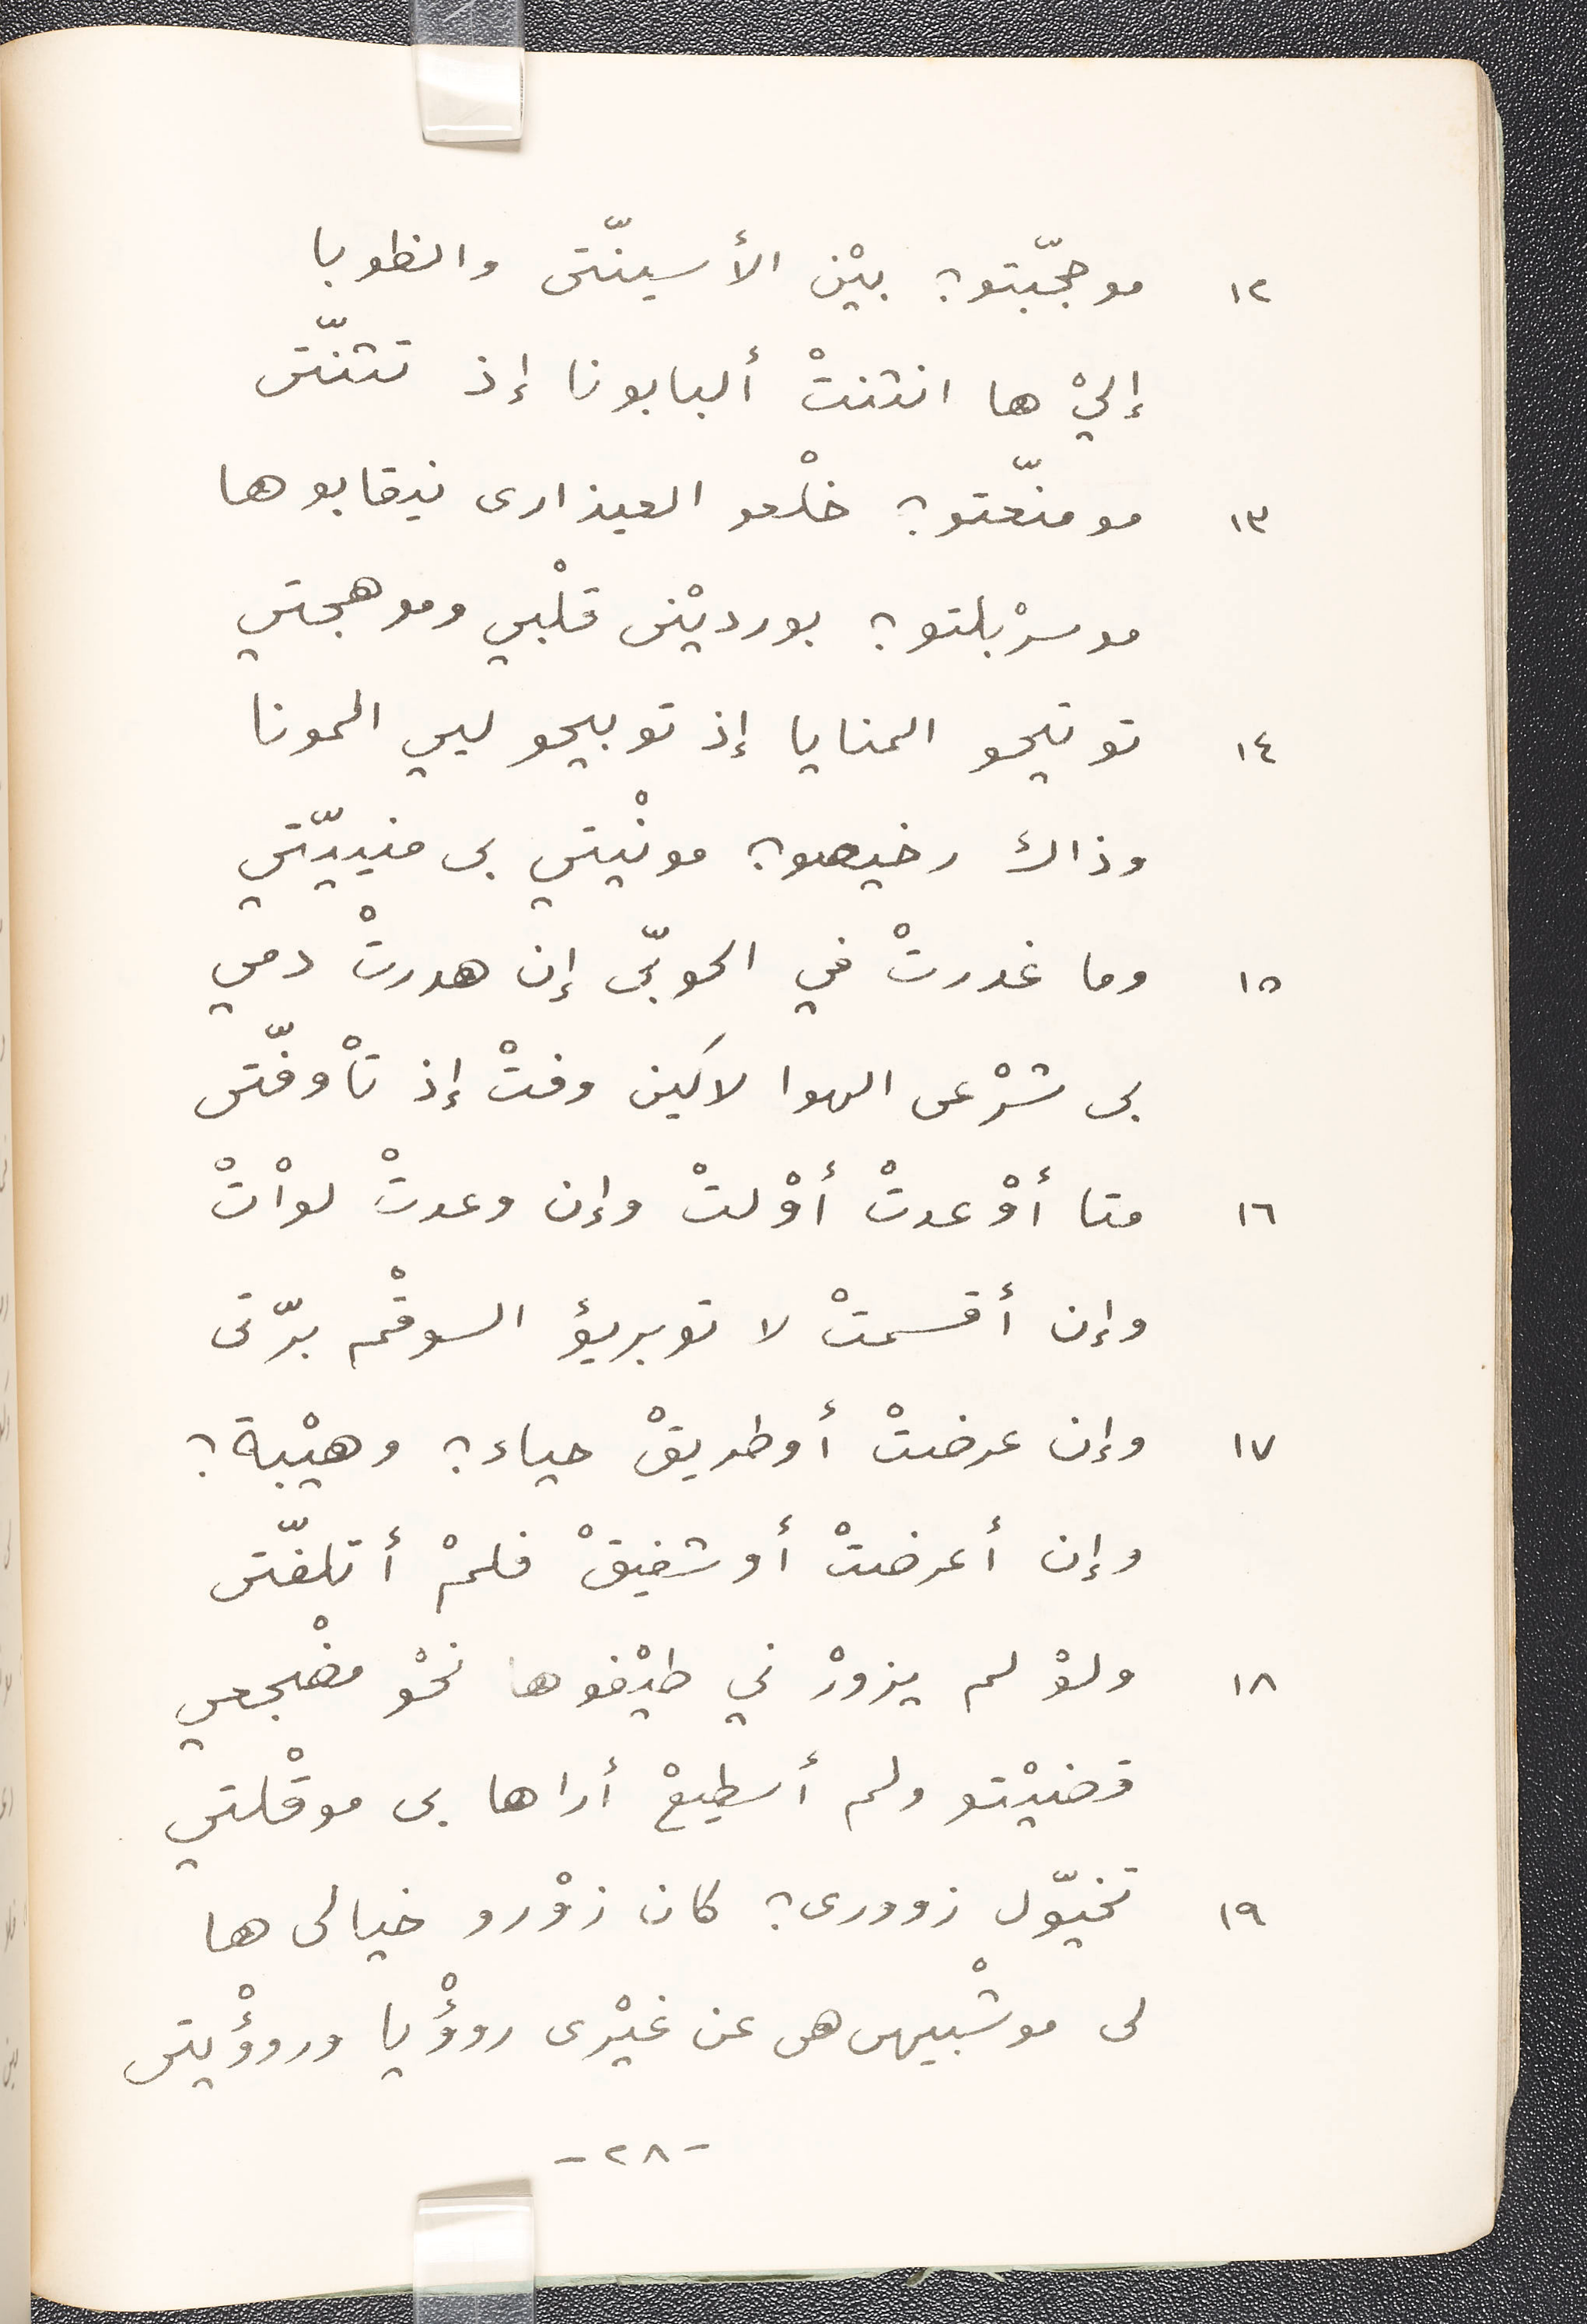 ١٢ موحجّبتو؟ بيْن الأسينّتى والظوبا
إليْ ها انثنتْ ألبابونا إذ تثنّتى
١٣ مومنّعتو؟ خلْعو العيذارى نيقابوها
موسرْبلتو؟ بورديْنى قلْبي وموهجتي
١٤ توتيحو المنايا إذ توبيحو ليي المونا
وذاك رخيصو؟ مونْيتي بى منييّتي
١٥ وما غدرتْ في الحوبّى إن هدرتْ دمي
بى شرْعى الهوا لاكين وفتْ إذ تاْوفّتى
١٦ متا أوْعدتْ أوْلتْ وإن وعدتْ لواْتْ
وإن أقسمتْ لا توبريؤ السوقْم برّتى
١٧ وإن عرضتْ أوطريقْ حياء؟ وهيْبة؟
وإن أعرضتْ أوشفيقْ فلمْ أتلفّتى
١٨ ولوْ لم يزورْني طيْفوها نحْو مضْجعي
قضيْتو ولم أسطيعْ أراها بى موقْلتي
١٩ تخيّول زوورى؟ كان زوْرو خيالى ها
لى موشْبيهى هى عن غيْرى روؤْيا وروؤْيتى
-٢٨-